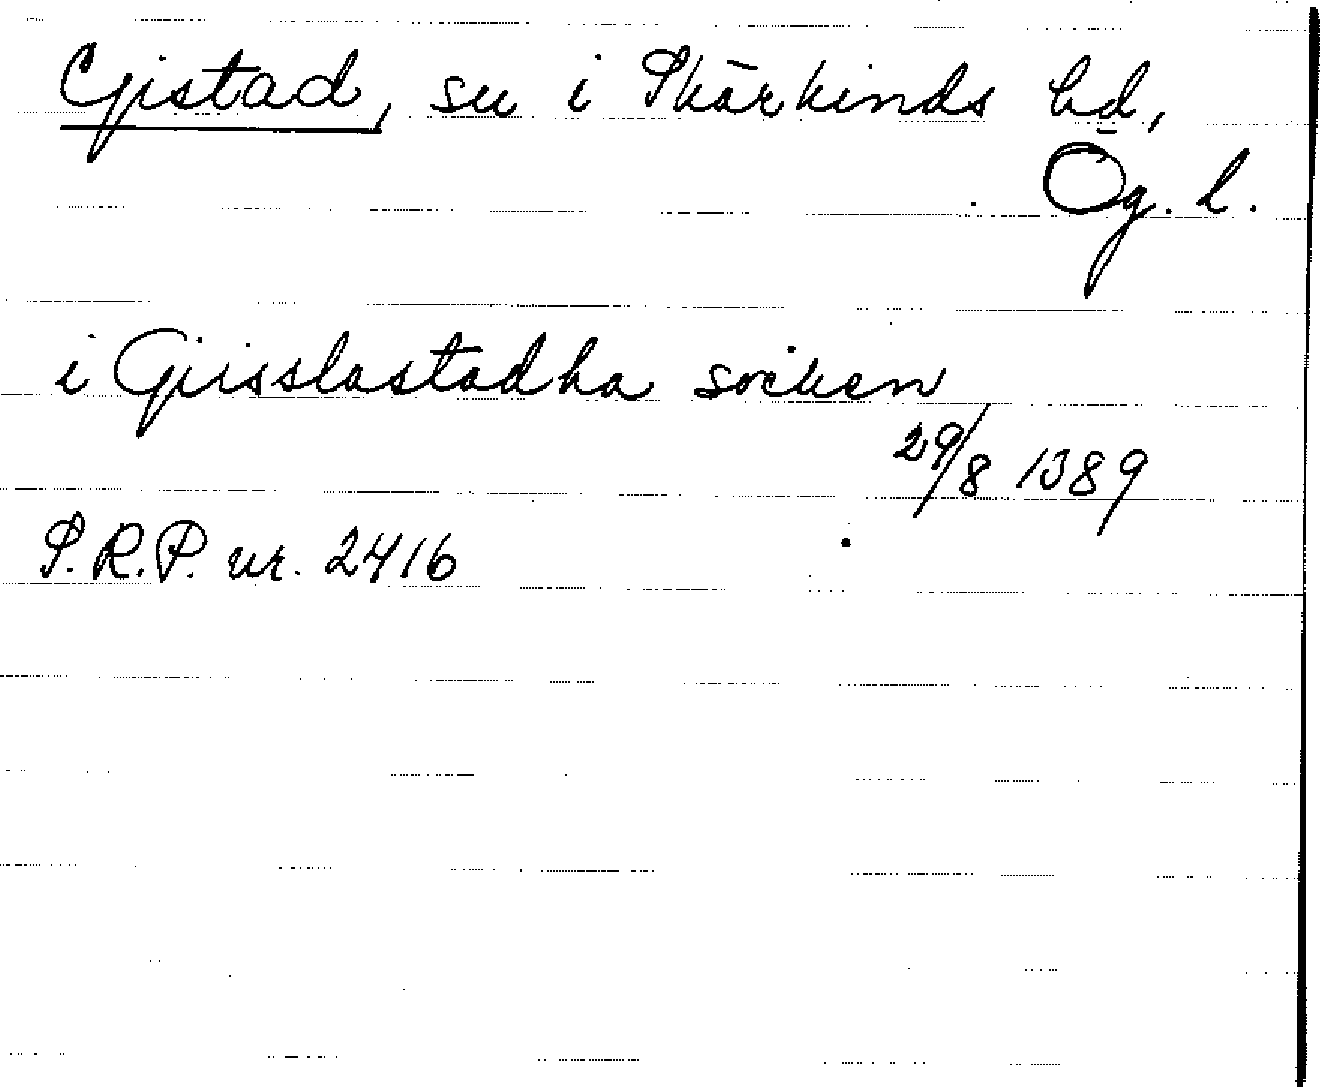 Gistad, sn i Skärkinds hd,
Ög. l.
i Giisslastadha socken
29/8 1389
S.R.P. nr. 2416